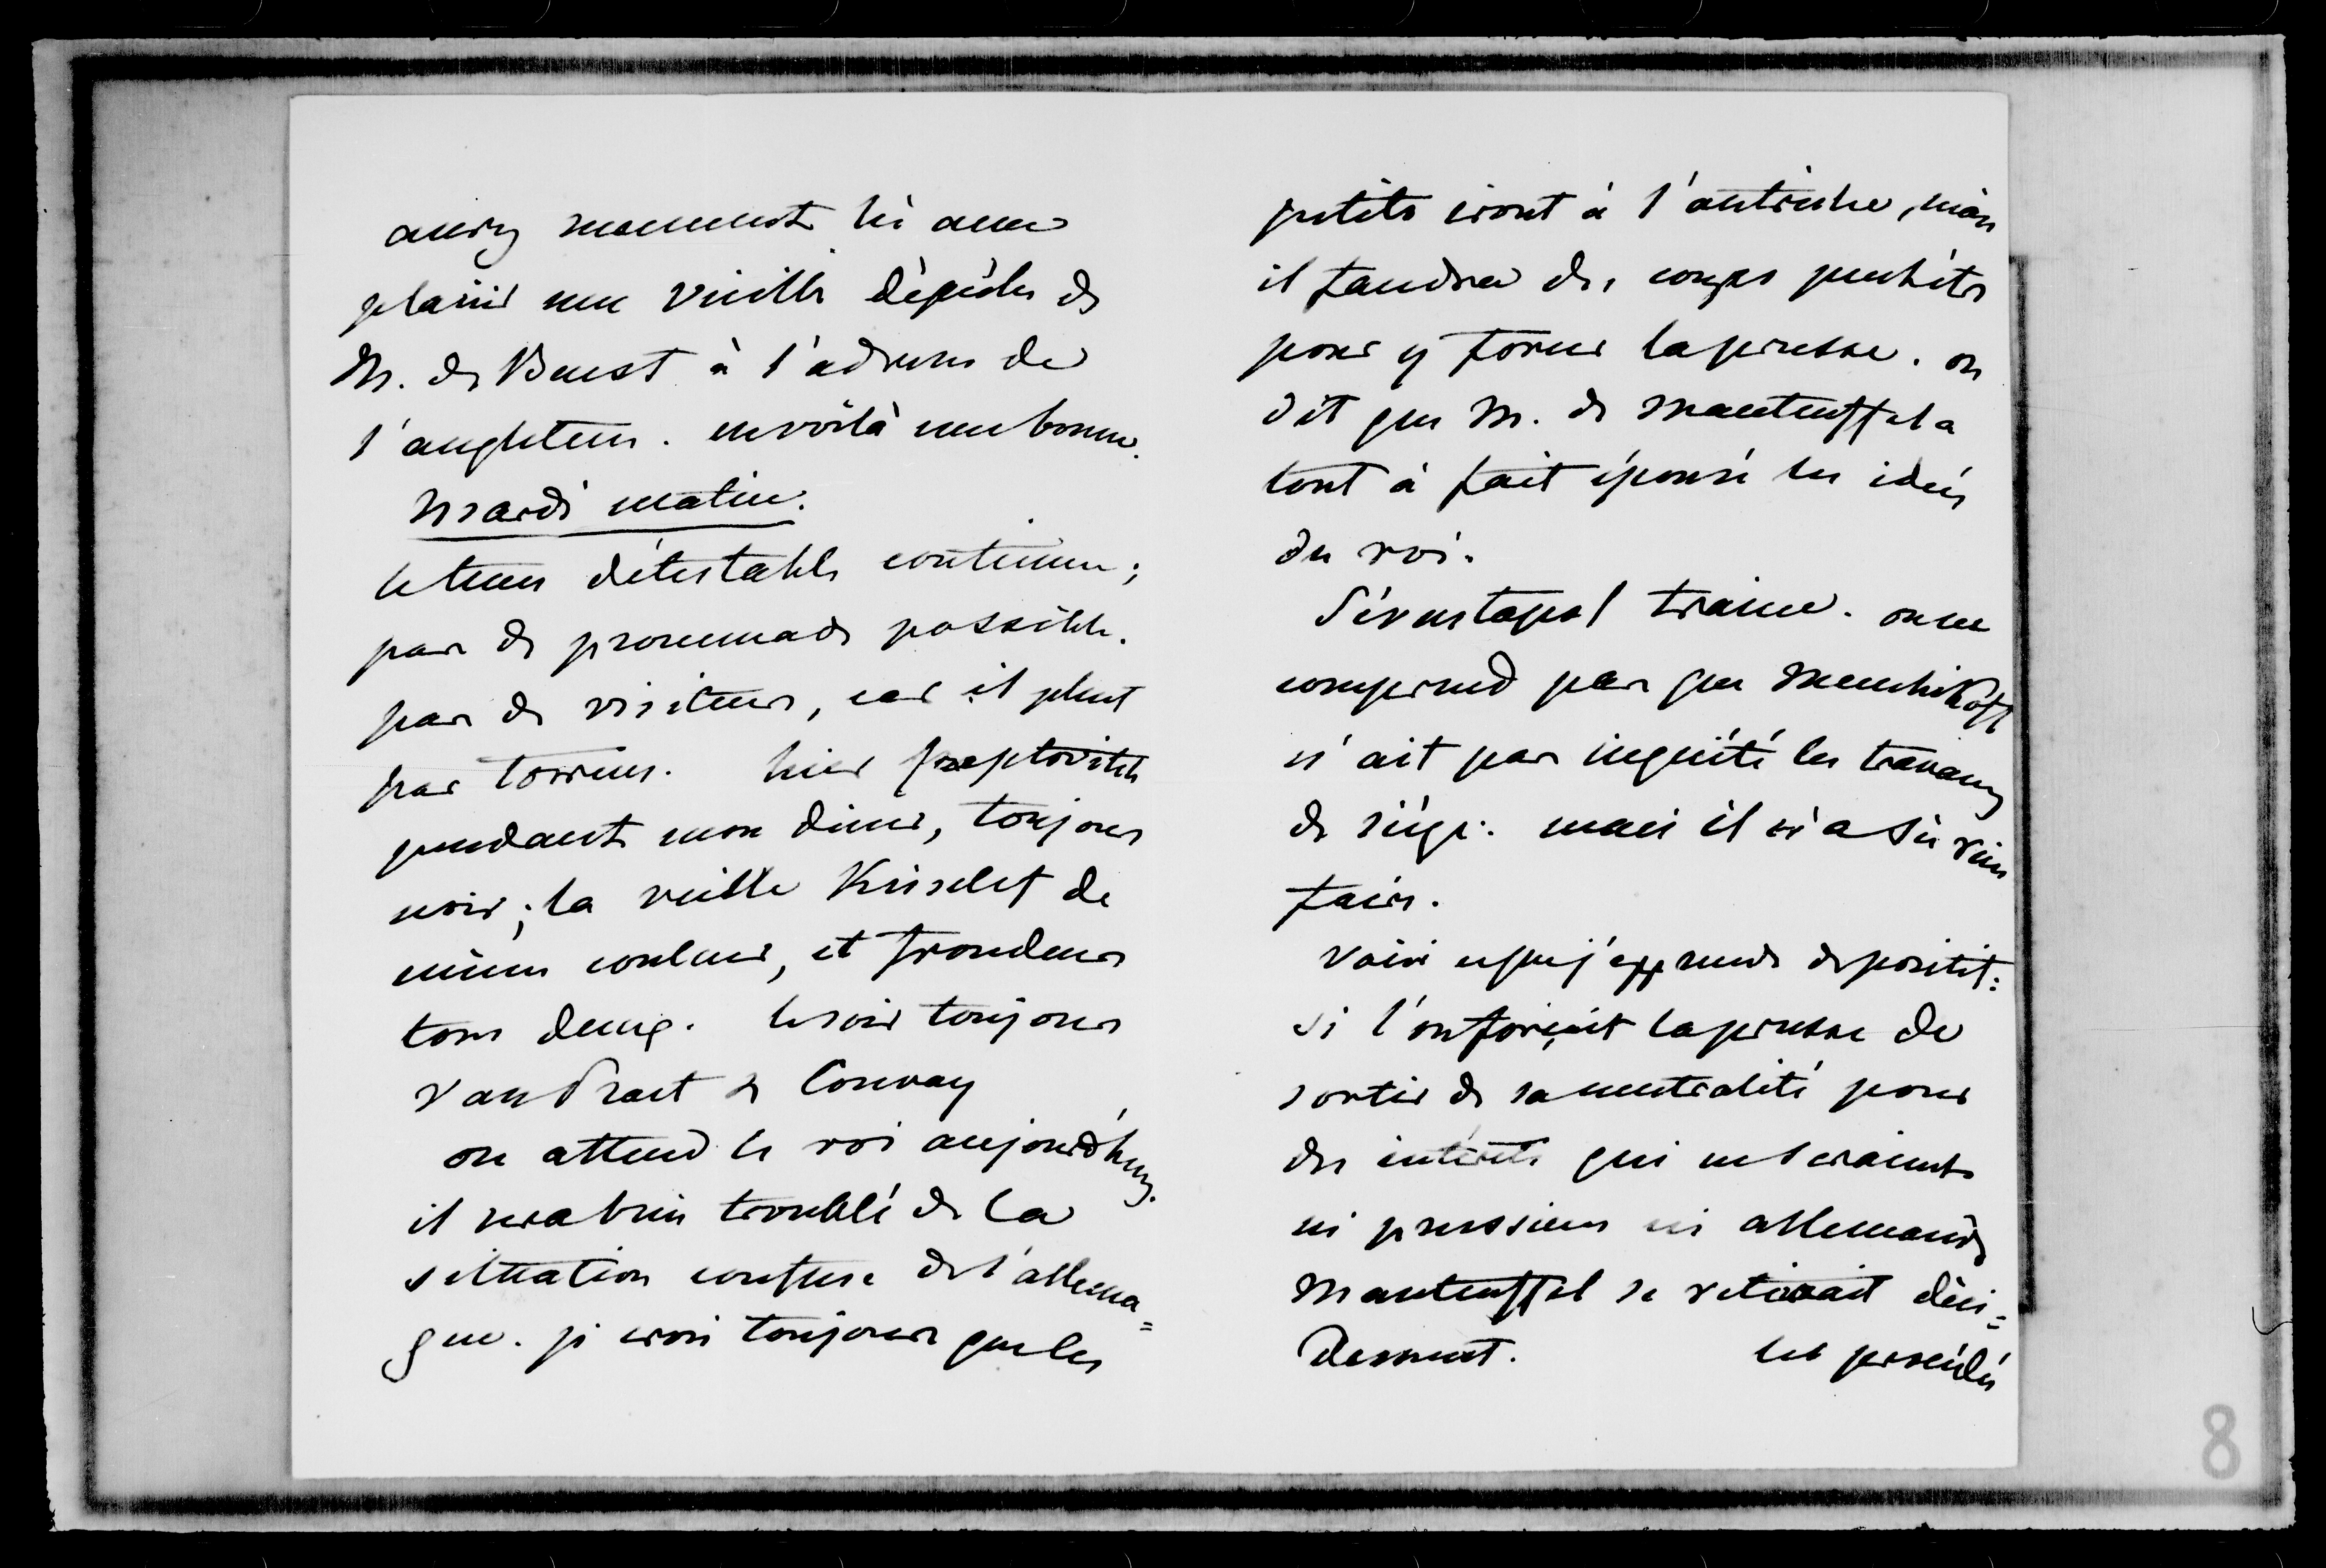 lu avec
plaisir une vieille dépêche de
M. de Beust à l'adresse de
l'angleterre. en voilà une bonne.
Mardi matin.
le tems détestable continue;
pas de promenade possible.
pas de visiteurs, car il pleut
par torrens. hier Creptovitch
pendant mon diner, toujours
noir; la veille Kisselef de
même couleur, et frondeurs
tous deux. le soir toujours
Van Praet & Conway
on attend le roi aujourd'huy.
il sera bien troublé de la
situation confuse de l'allema=
gne. je crois toujours que les
petits iront à l'autriche, mais
il faudra des coups
pour y forcer la prusse. on
dit que M. de Manteuffel a
tout à fait épousé les idées
du roi.
Sévastopol traine. on ne
comprend pas que Menchikoff
n'ait pas inquiété les travaux
de siége. mais il n'a sû rien
faire.
Voici ce que j'apprends de positif:
si l'on forçait la prusse de
sortir de sa neutralité pour
des intérêts qui ne seraient
ni prussiens ni allemands
Manteuffel se retirerait déci=
dement. les
8